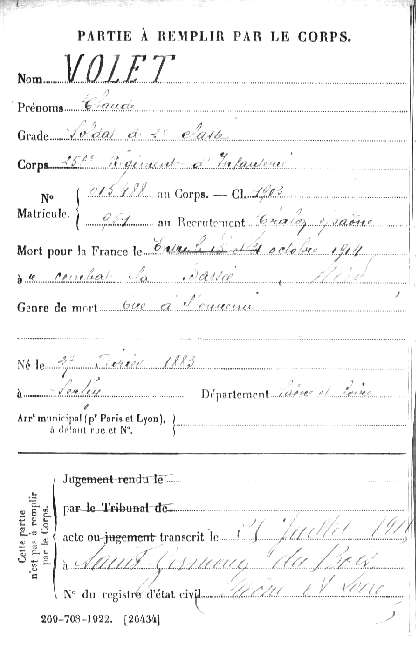 PARTIE À REMPLIR PAR LE CORPS.
Nom VOLET
Prénoms Claude
Grade Soldat de 2e Classe
Corps Régiment d'Infanterie
No Matricule. au Corps. — Cl. 1903
961 au Recrutement Saône
Mort pour la France le octobre 1914
à combat La Bassée
Genre de mort tué à l'ennemi
Né le Février 1883
à Département Saône et Loire
Arrt municipal (pr Paris et Lyon),
à défaut rue et No.
Cette partie n'est pas à remplir par le Corps.
Jugement rendu le
par le Tribunal de
acte ou jugement transcrit le Juillet
à Saint Germain du Bois
No du registre d'état civil Saône et Loire
269-708-1922. [26434]